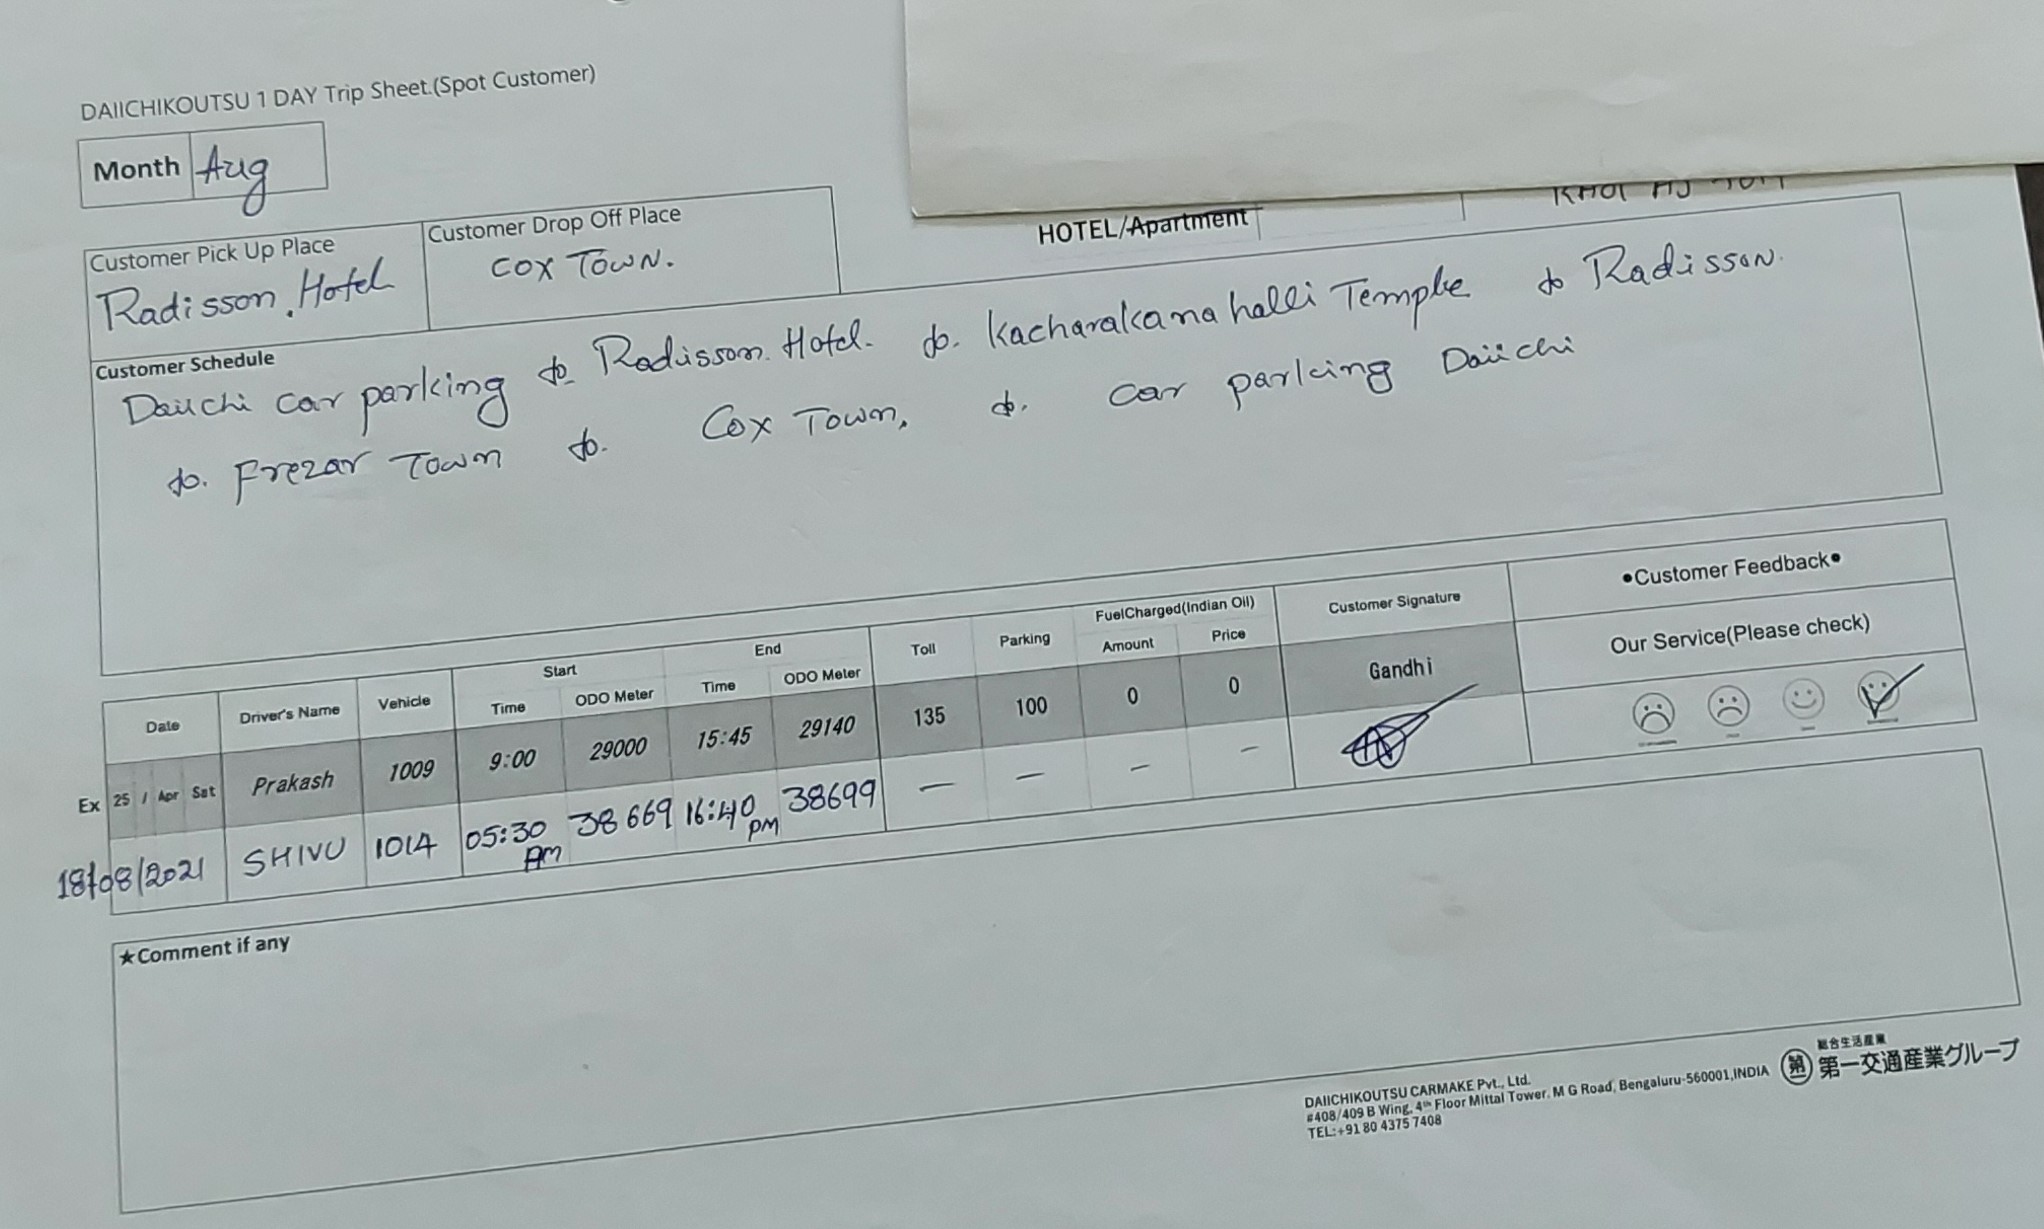 DAIICHIKOUTSU 1 DAY Trip Sheet.(Spot Customer)
Month Aug
Customer Pick Up Place
Radisson. Hotel
Customer Drop Off Place
COX TOWN.
HOTEL/Apartment
Customer Schedule
Daiichi car parking to Radisson. Hotel. to. Kacharakanahalli Temple to Radisson.
to. Frezar Town to. Cox Town, to. car parking Daiichi
Date Driver's Name Vehicle Start Time ODO Meter End Time ODO Meter Toll Parking FuelCharged(Indian Oil) Amount Price Customer Signature •Customer Feedback•
Our Service(Please check)
Ex 25 / Apr Sat Prakash 1009 9:00 29000 15:45 29140 135 100 0 0 Gandhi
18/08/2021 SHIVU 1014 05:30 AM 38669 16:40 PM 38699 — — — —
★Comment if any
DAIICHIKOUTSU CARMAKE Pvt., Ltd.
#408/409 B Wing, 4th Floor Mittal Tower, M G Road, Bengaluru-560001,INDIA
TEL:+91 80 4375 7408
総合生活産業
第一交通産業グループ